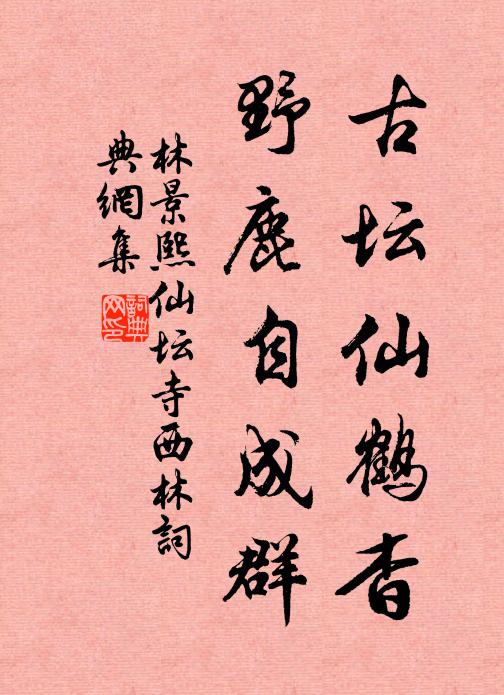 古坛仙鹤杳
野鹿自成群
林景熙仙坛寺西林詞
典網集
詞典网印